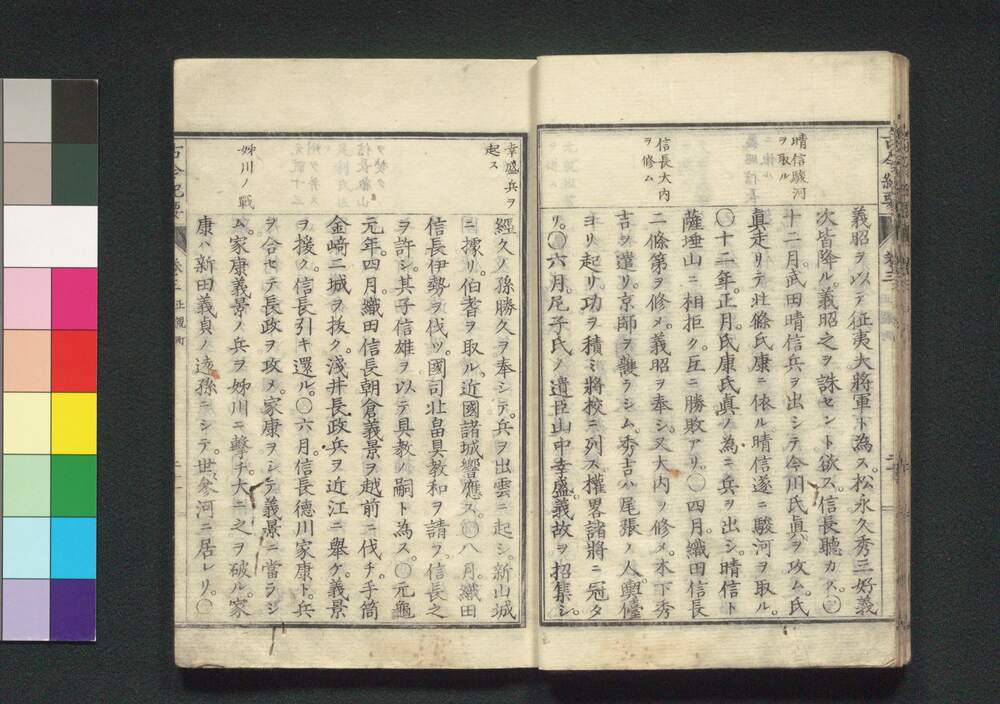 晴信駿河
ヲ取ル
信長大内
ヲ修ム
義昭ヲ以テ征夷大將軍ト為ス。松永久秀三好義
次皆降ル。義昭之ヲ誅セント欲ス。信長聽カス。〇
十二月。武田晴信兵ヲ出シテ今川氏眞ヲ攻ム。氏
眞走リテ北條氏康ニ依ル。晴信遂ニ駿河ヲ取ル。
〇十二年。正月。氏康氏眞ノ為ニ兵ヲ出シ。晴信ト
薩埵山ニ相拒ク。互ニ勝敗アリ。〇四月。織田信長
二條第ヲ修メ。義昭ヲ奉シ。又大内ヲ修メ。木下秀
吉ヲ遣リ。京師ヲ護ラシム。秀吉ハ尾張ノ人。輿儓
ヨリ起リ。功ヲ積ミ將校ニ列ス。權畧諸將ニ冠タ
リ。〇六月。尼子氏ノ遺臣山中幸盛。義故ヲ招集シ。
幸盛兵ヲ
起ス
姉川ノ戰
經久ノ孫勝久ヲ奉シテ。兵ヲ出雲ニ起シ。新山城
ニ據リ。伯耆ヲ取ル。近國諸城響應ス。〇八月。織田
信長伊勢ヲ伐ツ。國司北畠具教和ヲ請フ。信長之
ヲ許シ。其子信雄ヲ以テ具教ノ嗣ト為ス。〇元龜
元年。四月。織田信長朝倉義景ヲ越前ニ伐チ。手筒
金﨑二城ヲ拔ク。淺井長政兵ヲ近江ニ舉ケ。義景
ヲ援ク。信長引キ還ル。〇六月。信長德川家康ト。兵
ヲ合セテ長政ヲ攻メ。家康ヲシテ義景ニ當ラシ
ム。家康義景ノ兵ヲ姊川ニ擊チ。大ニ之ヲ破ル。家
康ハ新田義貞ノ遠孫ニシテ。世〻參河ニ居レリ。〇
古今紀要